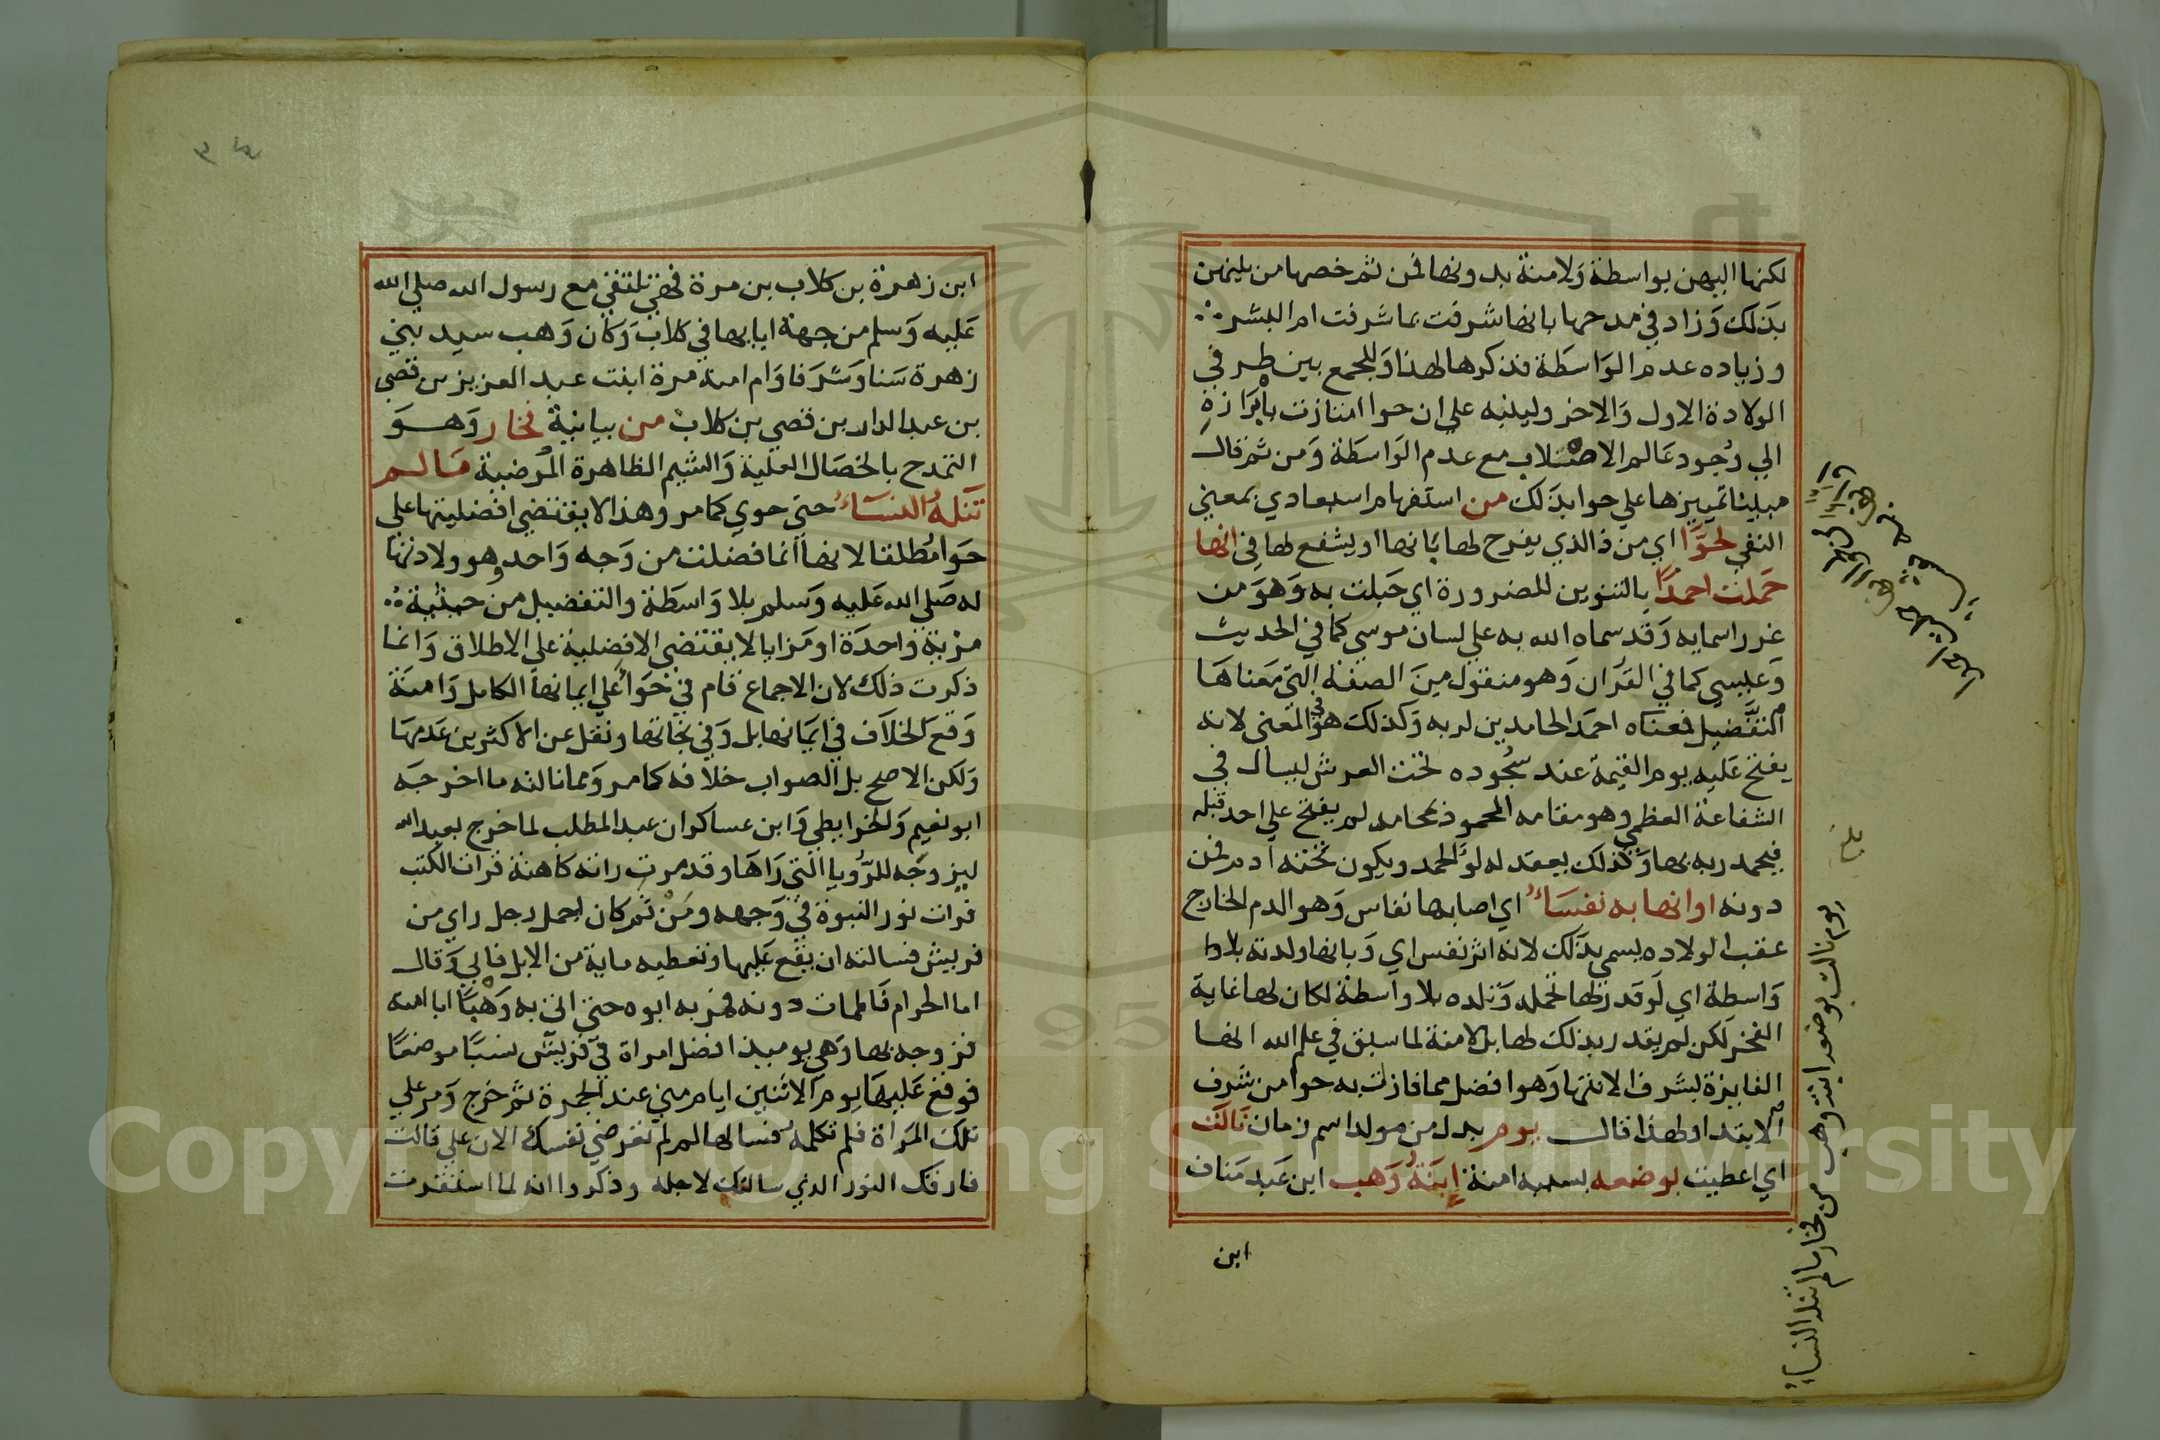 لكنها اليهن بواسطة ولامنة بدونها فمن ثم خصها من بينهن
بذلك وزاد في مدحها بانها شرفت بما شرفت ام البشر
وزياده عدم الواسطة فذكرها لهذا وللجمع بين طرفي
الولادة الاول والاخر ولينبه علي ان حوا امتازت بابرازة
الي وجود عالم الاصلاب مع عدم الواسطة ومن ثم قال
مبينا تمييزها علي حوا بذلك من استفهام استبعادي بمعني
النفي لحوا اي من ذا الذي يفرح لها بانها او يشفع لها في انها
حملت احمدا بالتنوين للضرورة اي حبلت به وهو من
غرر اسمايه وقد سماه الله به علي لسان موسي كما في الحديث
وعيسي كما في القران وهو منقول من الصفة التي معناها
التفضيل فمعناه احمد الحامدين لربه وكذلك هو في المعني لانه
يفتح عليه يوم القيمة عند سجوده تحت العرش ليسال في
الشفاعة العظمي وهو مقامه المحمود بمحامد لم يفتح علي احد قبله
فيحمد ربه بها وكذلك يعقد له لوا الحمد ويكون تحته ادم فمن
دونه او انها به نفساء اي اصابها نفاس وهو الدم الخارج
عقب الولاده يسمي بذلك لانه اثر نفس اي وبانها ولدته بلا
واسطة اي لو قدر انها تحمله وتلده بلا واسطة لكان لها غاية
الفخر لكن لم يقدر بذلك لها بل لامنة لما سبق في علم الله انها
الفايزة بشرف الانتها وهو افضل مما فازت به حوا من شرف
الابتدا ولهذا قال يوم بدل من مولد اسم زمان نالت
اي اعطيت بوضعه بسببه امنة ابنة وهب ابن عبد مناف
ابن
بلغ
يوم نالت بوضعه ابنة وهب من فخار ما لم تنله النساء
ابن زهرة بن كلاب بن مرة فهي تلتقي مع رسول الله صلي الله
عليه وسلم من جهة ابايها في كلاب وكان وهب سيد بني
زهرة سنا وشرفا وام امنة مرة ابنت عبد العزيز بن قصي
بن عبد الدار بن قصي بن كلاب من بيانية فخار وهو
التمدح بالخصال العلية والشيم الظاهرة المرضية مالم
تنله النساء حتي حوي كما مر وهذا لا يقتضي افضليتها علي
حوا مطلقا لانها انما فضلت من وجه واحد وهو ولادتها
له صلي الله عليه وسلم بلا واسطة والتفضيل من حيثية
مزية واحدة او مزايا لا يقتضي الافضلية علي الاطلاق وانما
ذكرت ذلك لان الاجماع قام في حوا علي ايمانها الكامل وامنة
وقع الخلاف في ايمانها بل وفي نجاتها ونقل عن الاكثرين عدمها
ولكن الاصح بل الصواب خلافه كما مر ومما نالته ما اخرجه
ابو نعيم والخرايطي وابن عساكر ان عبد المطلب لما خرج بعبد الله
ليزوجه للرؤيا التي راها وقد مرت راته كاهنة قرات الكتب
فرات نور النبوة في وجهه ومن ثم كان اجمل رجل راي من
قريش فسالته ان يقع عليها وتعطيه ماية من الابل فابي وقال
اما الحرام فالممات دونه فمر به ابوه حتي اتي به وهبا ابا امنة
فزوجه بها وهي يوميذ افضل امراة في قريش نسبا موضعا
فوقع عليها يوم الاثنين ايام مني عند الجمرة ثم خرج ومر علي
تلك المراة فلم تكلمه فسالها لم لم تعرضي نفسك الان علي قالت
فارقك النور الذي سالتك لاجله وذكروا انه لما استقرت